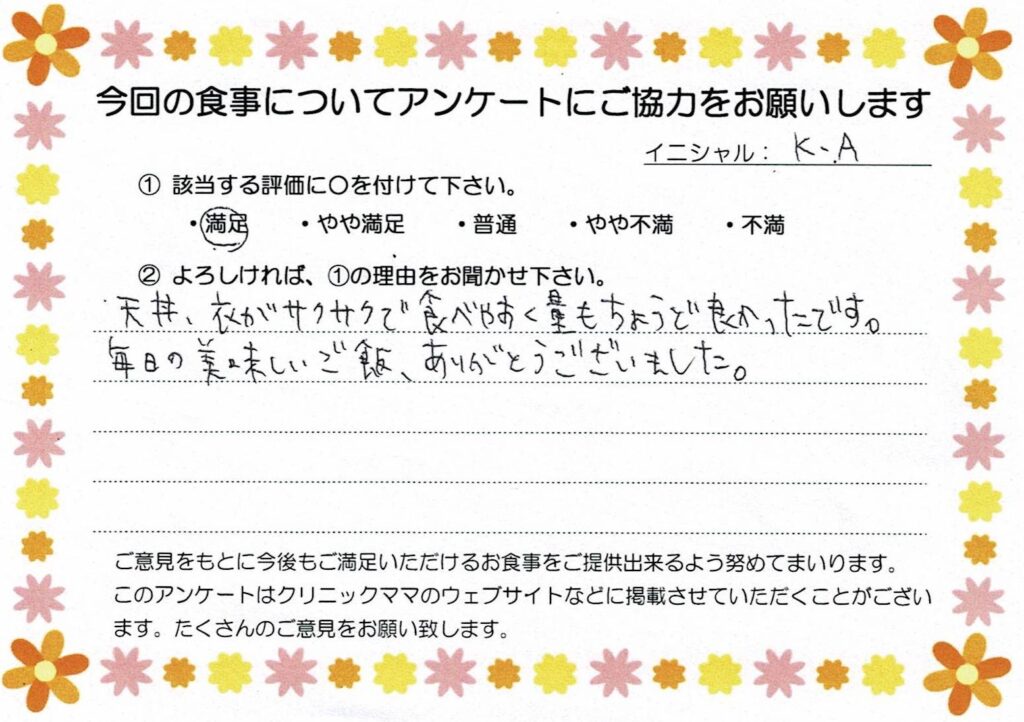 今回の食事についてアンケートにご協力をお願いします
イニシャル： K-.A
① 該当する評価に〇を付けて下さい。
・満足 ・やや満足 ・普通 ・やや不満 ・不満
② よろしければ、①の理由をお聞かせ下さい。
天丼、衣がサクサクで食べやすく量もちょうど良かったです。
毎日の美味しいご飯、ありがとうございました。
ご意見をもとに今後もご満足いただけるお食事をご提供出来るよう努めてまいります。
このアンケートはクリニックママのウェブサイトなどに掲載させていただくことがござい
ます。たくさんのご意見をお願い致します。